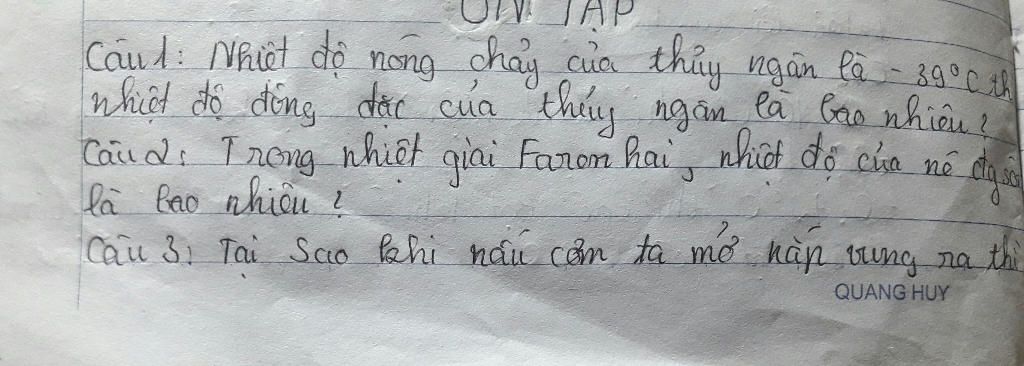 ÔN TẬP
Câu 1: Nhiệt độ nóng chảy của thủy ngân là - 39°C th
nhiệt độ đông đặc của thủy ngân là bao nhiêu?
Câu 2: Trong nhiệt giai Faren hai, nhiệt độ của nó đg sôi
là bao nhiêu?
Câu 3: Tại sao khi nấu cơm ta mở nắp vung ra thì
QUANG HUY